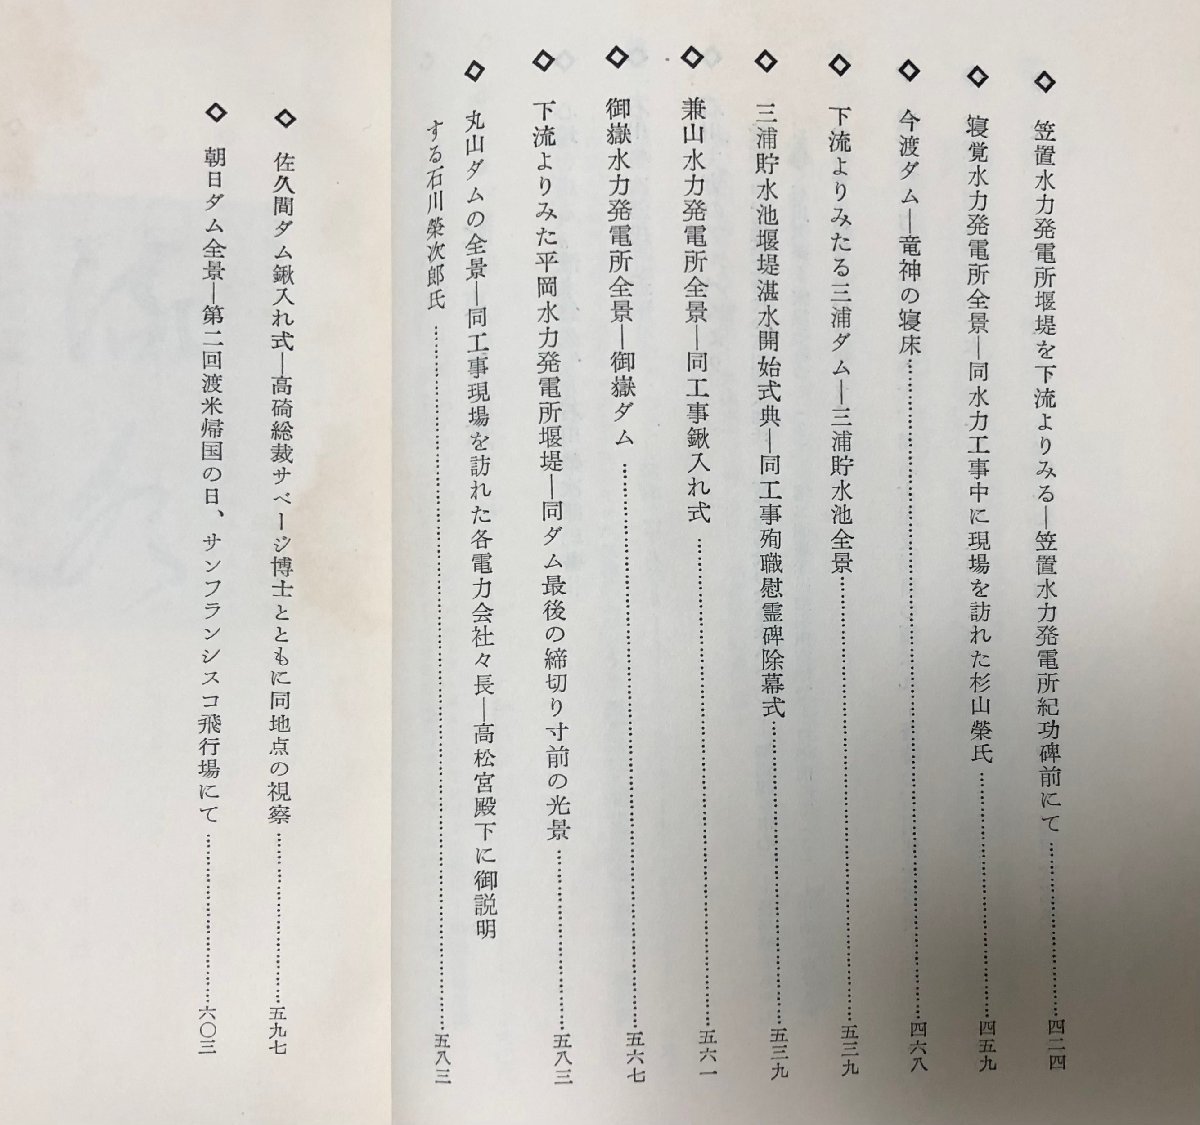 ◇ 笠置水力発電所堰堤を下流よりみる―笠置水力発電所紀功碑前にて…………四二四
◇ 寝覚水力発電所全景―同水力工事中に現場を訪れた杉山榮氏…………四五九
◇ 今渡ダム―竜神の寝床…………四六八
◇ 下流よりみたる三浦ダム―三浦貯水池全景…………五三九
◇ 三浦貯水池堰堤湛水開始式典―同工事殉職慰霊碑除幕式…………五三九
◇ 兼山水力発電所全景―同工事鍬入れ式…………五六一
◇ 御嶽水力発電所全景―御嶽ダム…………五六七
◇ 下流よりみた平岡水力発電所堰堤―同ダム最後の締切り寸前の光景…………五八三
◇ 丸山ダムの全景―同工事現場を訪れた各電力会社々長―高松宮殿下に御説明
する石川榮次郎氏…………五八三
◇ 佐久間ダム鍬入れ式―高碕総裁サベージ博士とともに同地点の視察…………五九七
◇ 朝日ダム全景―第二回渡米帰国の日、サンフランシスコ飛行場にて…………六〇三